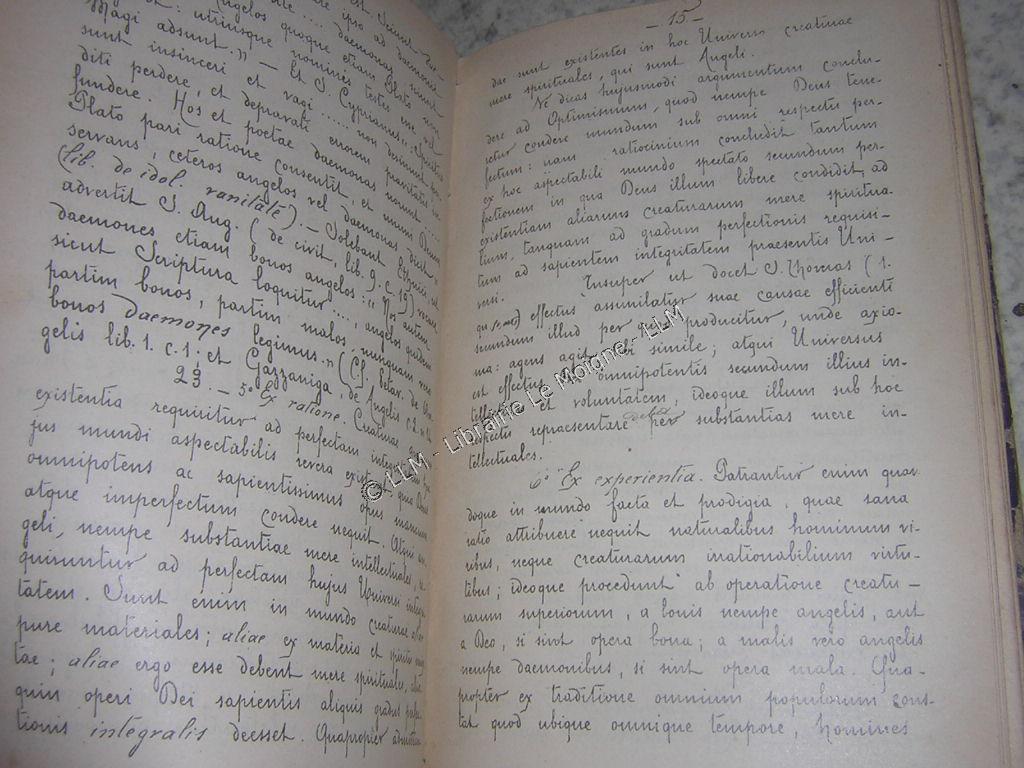 est. Scilicet
ipso ad daemones
daemonas, sicut
Angelos quoque etiam Plato
: utriusque nominis testes sunt
Magi adsunt.” — Et S. Cyprianus: “Spiritus
sunt insinceri et vagi ..... non desinunt per-
diti perdere, et depravati errorem pravitatis in-
fundere. Hos et poetae daemonas norunt .....
Plato pari ratione consentit, et unum Deum
servans, ceteros angelos vel daemonas dicit”
(lib. de idol. vanitate). — Solebant Ethnici, ut
advertit S. Aug. (de civit. lib. 9. c. 19) vocare
daemones etiam bonos angelos: “Nos autem,
sicut Scriptura loquitur ..., angelos quidem
partim bonos, partim malos, nunquam vero
bonos daemones legimus.” (Cf. Petav. de An-
gelis lib. 1. c. 1; et Gazzaniga, de Angelis c. 2. n.
23. — 5° Ex ratione. Creaturae
existentia requiritur ad perfectam integritatem hu-
jus mundi aspectabilis revera existit, quia Deus
omnipotens ac sapientissimus opus mancum
atque imperfectum condere nequit. Atqui an-
geli, nempe substantiae mere intellectuales, re-
quiruntur ad perfectam hujus Universi integri-
tatem. Sunt enim in mundo creaturae aliae
pure materiales; aliae ex materia et spiritu
tae; aliae ergo esse debent mere spirituales, alio-
quin operi Dei sapientis aliquis gradus perfec-
tionis integralis deesset. Quapropter admitten-
— 15 —
dae sunt existentes in hoc Universo creaturae
mere spirituales, qui sunt Angeli.
Ne dicas hujusmodi argumentum conclu-
dere ad Optimismum, quod nempe Deus tene-
retur condere mundum sub omni respectu per-
fectum: nam ratiocinium concludit tantum
ex hoc aspectabili mundo spectato secundum per-
fectionem in qua Deus illum libere condidit, ad
existentiam aliarum creaturarum mere spiritua-
lium, tanquam ad gradum perfectionis requisi-
tum ad sapientem integritatem praesentis Uni-
versi. Insuper ut docet S. Thomas (1.
qu. 50. art. 1) effectus assimilatur suae causae efficienti
secundum illud per quod producitur, unde axio-
ma: agens agit sibi simile; atqui Universus
est effectus omnipotentis secundum illius in-
tellectum et voluntatem, ideoque illum sub hoc
respectu repraesentare debet per substantias mere in-
tellectuales.
6° Ex experientia. Patrantur enim quan-
doque in mundo facta et prodigia, quae sana
ratio attribuere nequit naturalibus hominum vi-
ribus, neque creaturarum irrationabilium virtu-
tibus; ideoque procedunt ab operatione creatu-
rarum superiorum, a bonis nempe angelis, aut
a Deo, si sint opera bona; a malis vero angelis
nempe daemonibus, si sint opera mala. Qua-
propter ex traditione omnium populorum cons-
tat quod ubique omnique tempore, homines
© LLM - Librairie Le Moigne - LLM